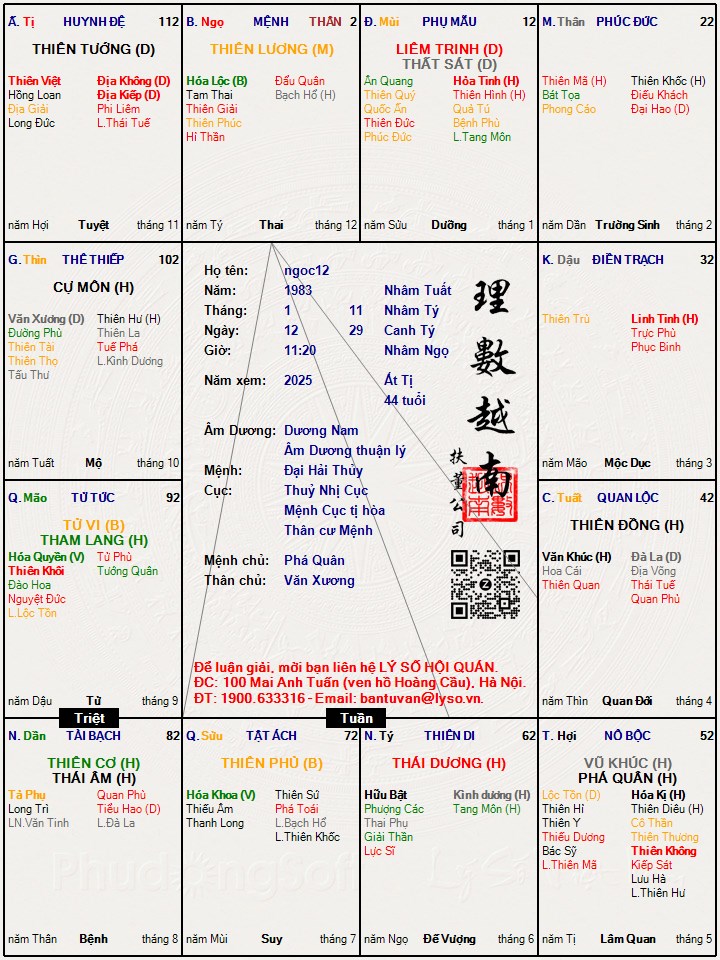 Ấ. Tị HUYNH ĐỆ 112
THIÊN TƯỚNG (D)
Thiên Việt Địa Không (D)
Hồng Loan Địa Kiếp (D)
Địa Giải Phi Liêm
Long Đức L.Thái Tuế
năm Hợi Tuyệt tháng 11
B. Ngọ MỆNH THÂN 2
THIÊN LƯƠNG (M)
Hóa Lộc (B) Đẩu Quân
Tam Thai Bạch Hổ (H)
Thiên Giải
Thiên Phúc
Hỉ Thần
năm Tý Thai tháng 12
Đ. Mùi PHỤ MẪU 12
LIÊM TRINH (D)
THẤT SÁT (D)
Ân Quang Hỏa Tinh (H)
Thiên Quý Thiên Hình (H)
Quốc Ấn Quả Tú
Thiên Đức Bệnh Phù
Phúc Đức L.Tang Môn
năm Sửu Dưỡng tháng 1
M. Thân PHÚC ĐỨC 22
Thiên Mã (H) Thiên Khốc (H)
Bát Tọa Điếu Khách
Phong Cáo Đại Hao (D)
năm Dần Trường Sinh tháng 2
G. Thìn THÊ THIẾP 102
CỰ MÔN (H)
Văn Xương (D) Thiên Hư (H)
Đường Phù Thiên La
Thiên Tài Tuế Phá
Thiên Thọ L.Kình Dương
Tấu Thư
năm Tuất Mộ tháng 10
Họ tên: ngoc12
Năm: 1983 Nhâm Tuất
Tháng: 1 11 Nhâm Tý
Ngày: 12 29 Canh Tý
Giờ: 11:20 Nhâm Ngọ
Năm xem: 2025 Ất Tị
44 tuổi
Âm Dương: Dương Nam
Âm Dương thuận lý
Mệnh: Đại Hải Thủy
Cục: Thuỷ Nhị Cục
Mệnh Cục tị hòa
Thân cư Mệnh
Mệnh chủ: Phá Quân
Thân chủ: Văn Xương
理數越南
扶董公司
Để luận giải, mời bạn liên hệ LÝ SỐ HỘI QUÁN.
ĐC: 100 Mai Anh Tuấn (ven hồ Hoàng Cầu), Hà Nội.
ĐT: 1900.633316 - Email: bantuvan@lyso.vn.
K. Dậu ĐIỀN TRẠCH 32
Thiên Trù Linh Tinh (H)
Trực Phù
Phục Binh
năm Mão Mộc Dục tháng 3
Q. Mão TỬ TỨC 92
TỬ VI (B)
THAM LANG (H)
Hóa Quyền (V) Tử Phù
Thiên Khôi Tướng Quân
Đào Hoa
Nguyệt Đức
L.Lộc Tồn
năm Dậu Tử tháng 9
C. Tuất QUAN LỘC 42
THIÊN ĐỒNG (H)
Văn Khúc (H) Đà La (D)
Hoa Cái Địa Võng
Thiên Quan Thái Tuế
Quan Phủ
năm Thìn Quan Đới tháng 4
Triệt
Tuần
N. Dần TÀI BẠCH 82
THIÊN CƠ (H)
THÁI ÂM (H)
Tả Phụ Quan Phù
Long Trì Tiểu Hao (D)
LN.Văn Tinh L.Đà La
năm Thân Bệnh tháng 8
Q. Sửu TẬT ÁCH 72
THIÊN PHỦ (B)
Hóa Khoa (V) Thiên Sứ
Thiếu Âm Phá Toái
Thanh Long L.Bạch Hổ
L.Thiên Khốc
năm Mùi Suy tháng 7
N. Tý THIÊN DI 62
THÁI DƯƠNG (H)
Hữu Bật Kình dương (H)
Phượng Các Tang Môn (H)
Thai Phụ
Giải Thần
Lực Sĩ
năm Ngọ Đế Vượng tháng 6
T. Hợi NÔ BỘC 52
VŨ KHÚC (H)
PHÁ QUÂN (H)
Lộc Tồn (D) Hóa Kị (H)
Thiên Hỉ Thiên Diêu (H)
Thiên Y Cô Thần
Thiếu Dương Thiên Thương
Bác Sỹ Thiên Không
L.Thiên Mã Kiếp Sát
Lưu Hà
L.Thiên Hư
năm Tị Lâm Quan tháng 5